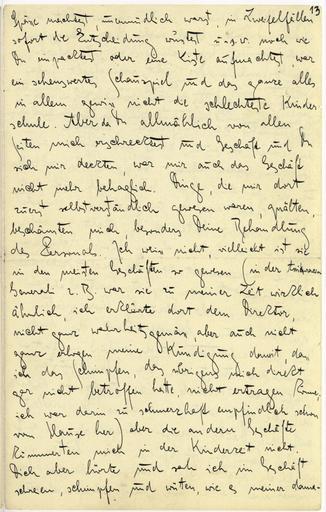 13
Spässe machtest unermüdlich warst, in Zweifelfällen
sofort die Entscheidung wusstest u.s.w. noch wie
Du einpacktest oder eine Kiste aufmachtest, war
ein sehenswertes Schauspiel und das ganze alles
in allem gewiss nicht die schlechteste Kinder-
schule. Aber da Du allmählich von allen
Seiten mich erschrecktest und Geschäft und Du
sich mir deckten, war mir auch das Geschäft
nicht mehr behaglich. Dinge, die mir dort
zuerst selbstverständlich gewesen waren, quälten,
beschämten mich, besonders Deine Behandlung
des Personals. Ich weiss nicht, vielleicht ist sie
in den meisten Geschäften so gewesen (in der
Generali z. B. war sie zu meiner Zeit wirklich
ähnlich, ich erklärte dort dem Direktor,
nicht ganz wahrheitsgemäss, aber auch nicht
ganz erlogen meine Kündigung damit, dass
ich das Schimpfen, das übrigens mich direkt
gar nicht betroffen hatte, nicht ertragen könne,
ich war darin zu schmerzhaft empfindlich schon
vom Hause her) aber die andern Geschäfte
kümmerten mich in der Kinderzeit nicht.
Dich aber hörte und sah ich im Geschäft
schreien, schimpfen und wüten, wie es meiner dama-